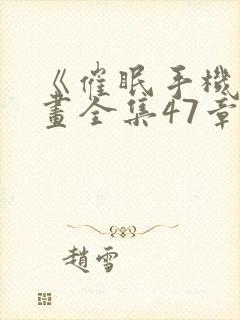 《催眠手機
畫全集47章
趙雪